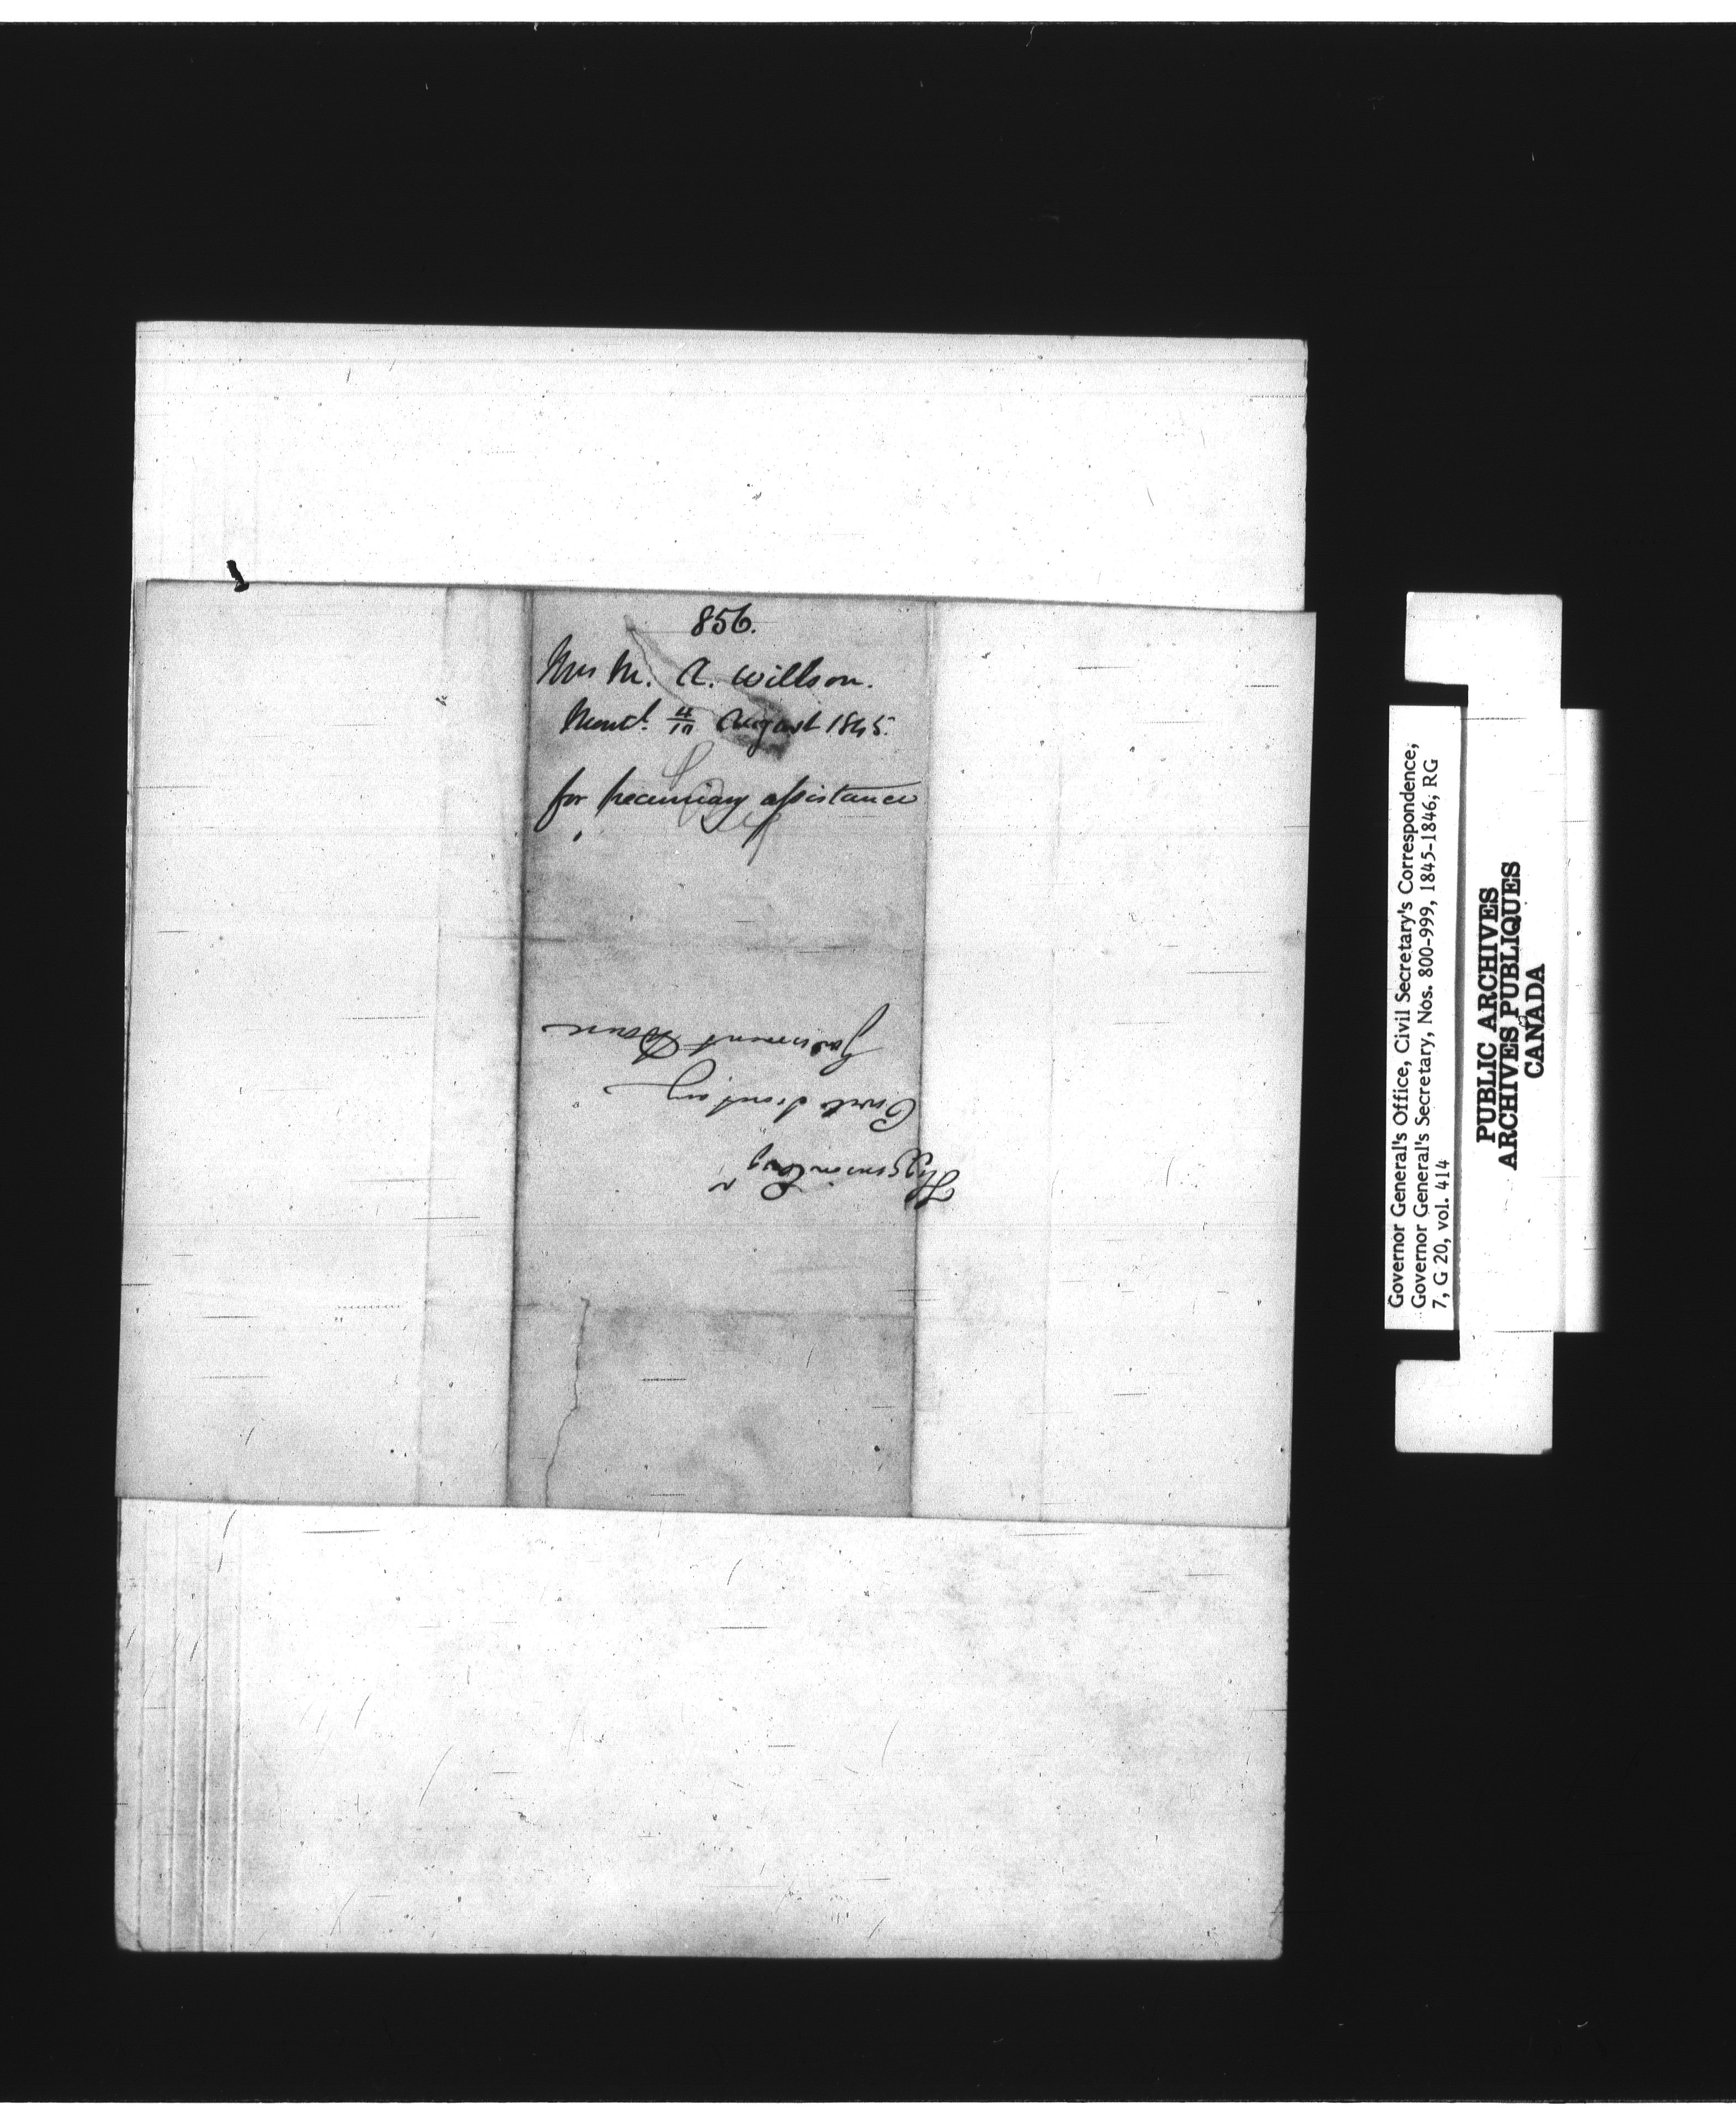 856.
Mrs M. A. Willson.
Montl. 4/10 August 1845.
for pecuniary assistance
Higginson Esqr
Civil Secretary
Government House
Governor General's Office, Civil Secretary's Correspondence;
Governor General's Secretary, Nos. 800-999, 1845-1846, RG
7, G 20, vol. 414
PUBLIC ARCHIVES
ARCHIVES PUBLIQUES
CANADA